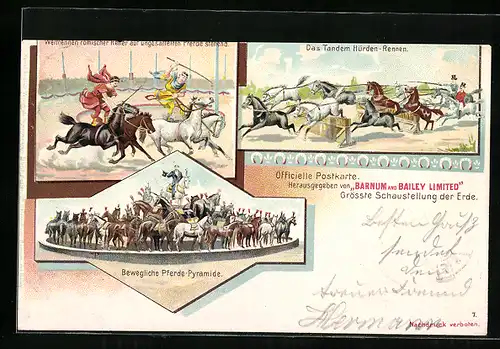 Wettrennen römischer Reiter auf ungesattelten Pferde stehend.
Das Tandem Hürden-Rennen.
Officielle Postkarte.
Herausgegeben von „BARNUM AND BAILEY LIMITED"
Grösste Schaustellung der Erde.
Bewegliche Pferde-Pyramide.
Besten Gruß
sendet
Dein
treuer Freund
Hermann
7.
Nachdruck verboten.